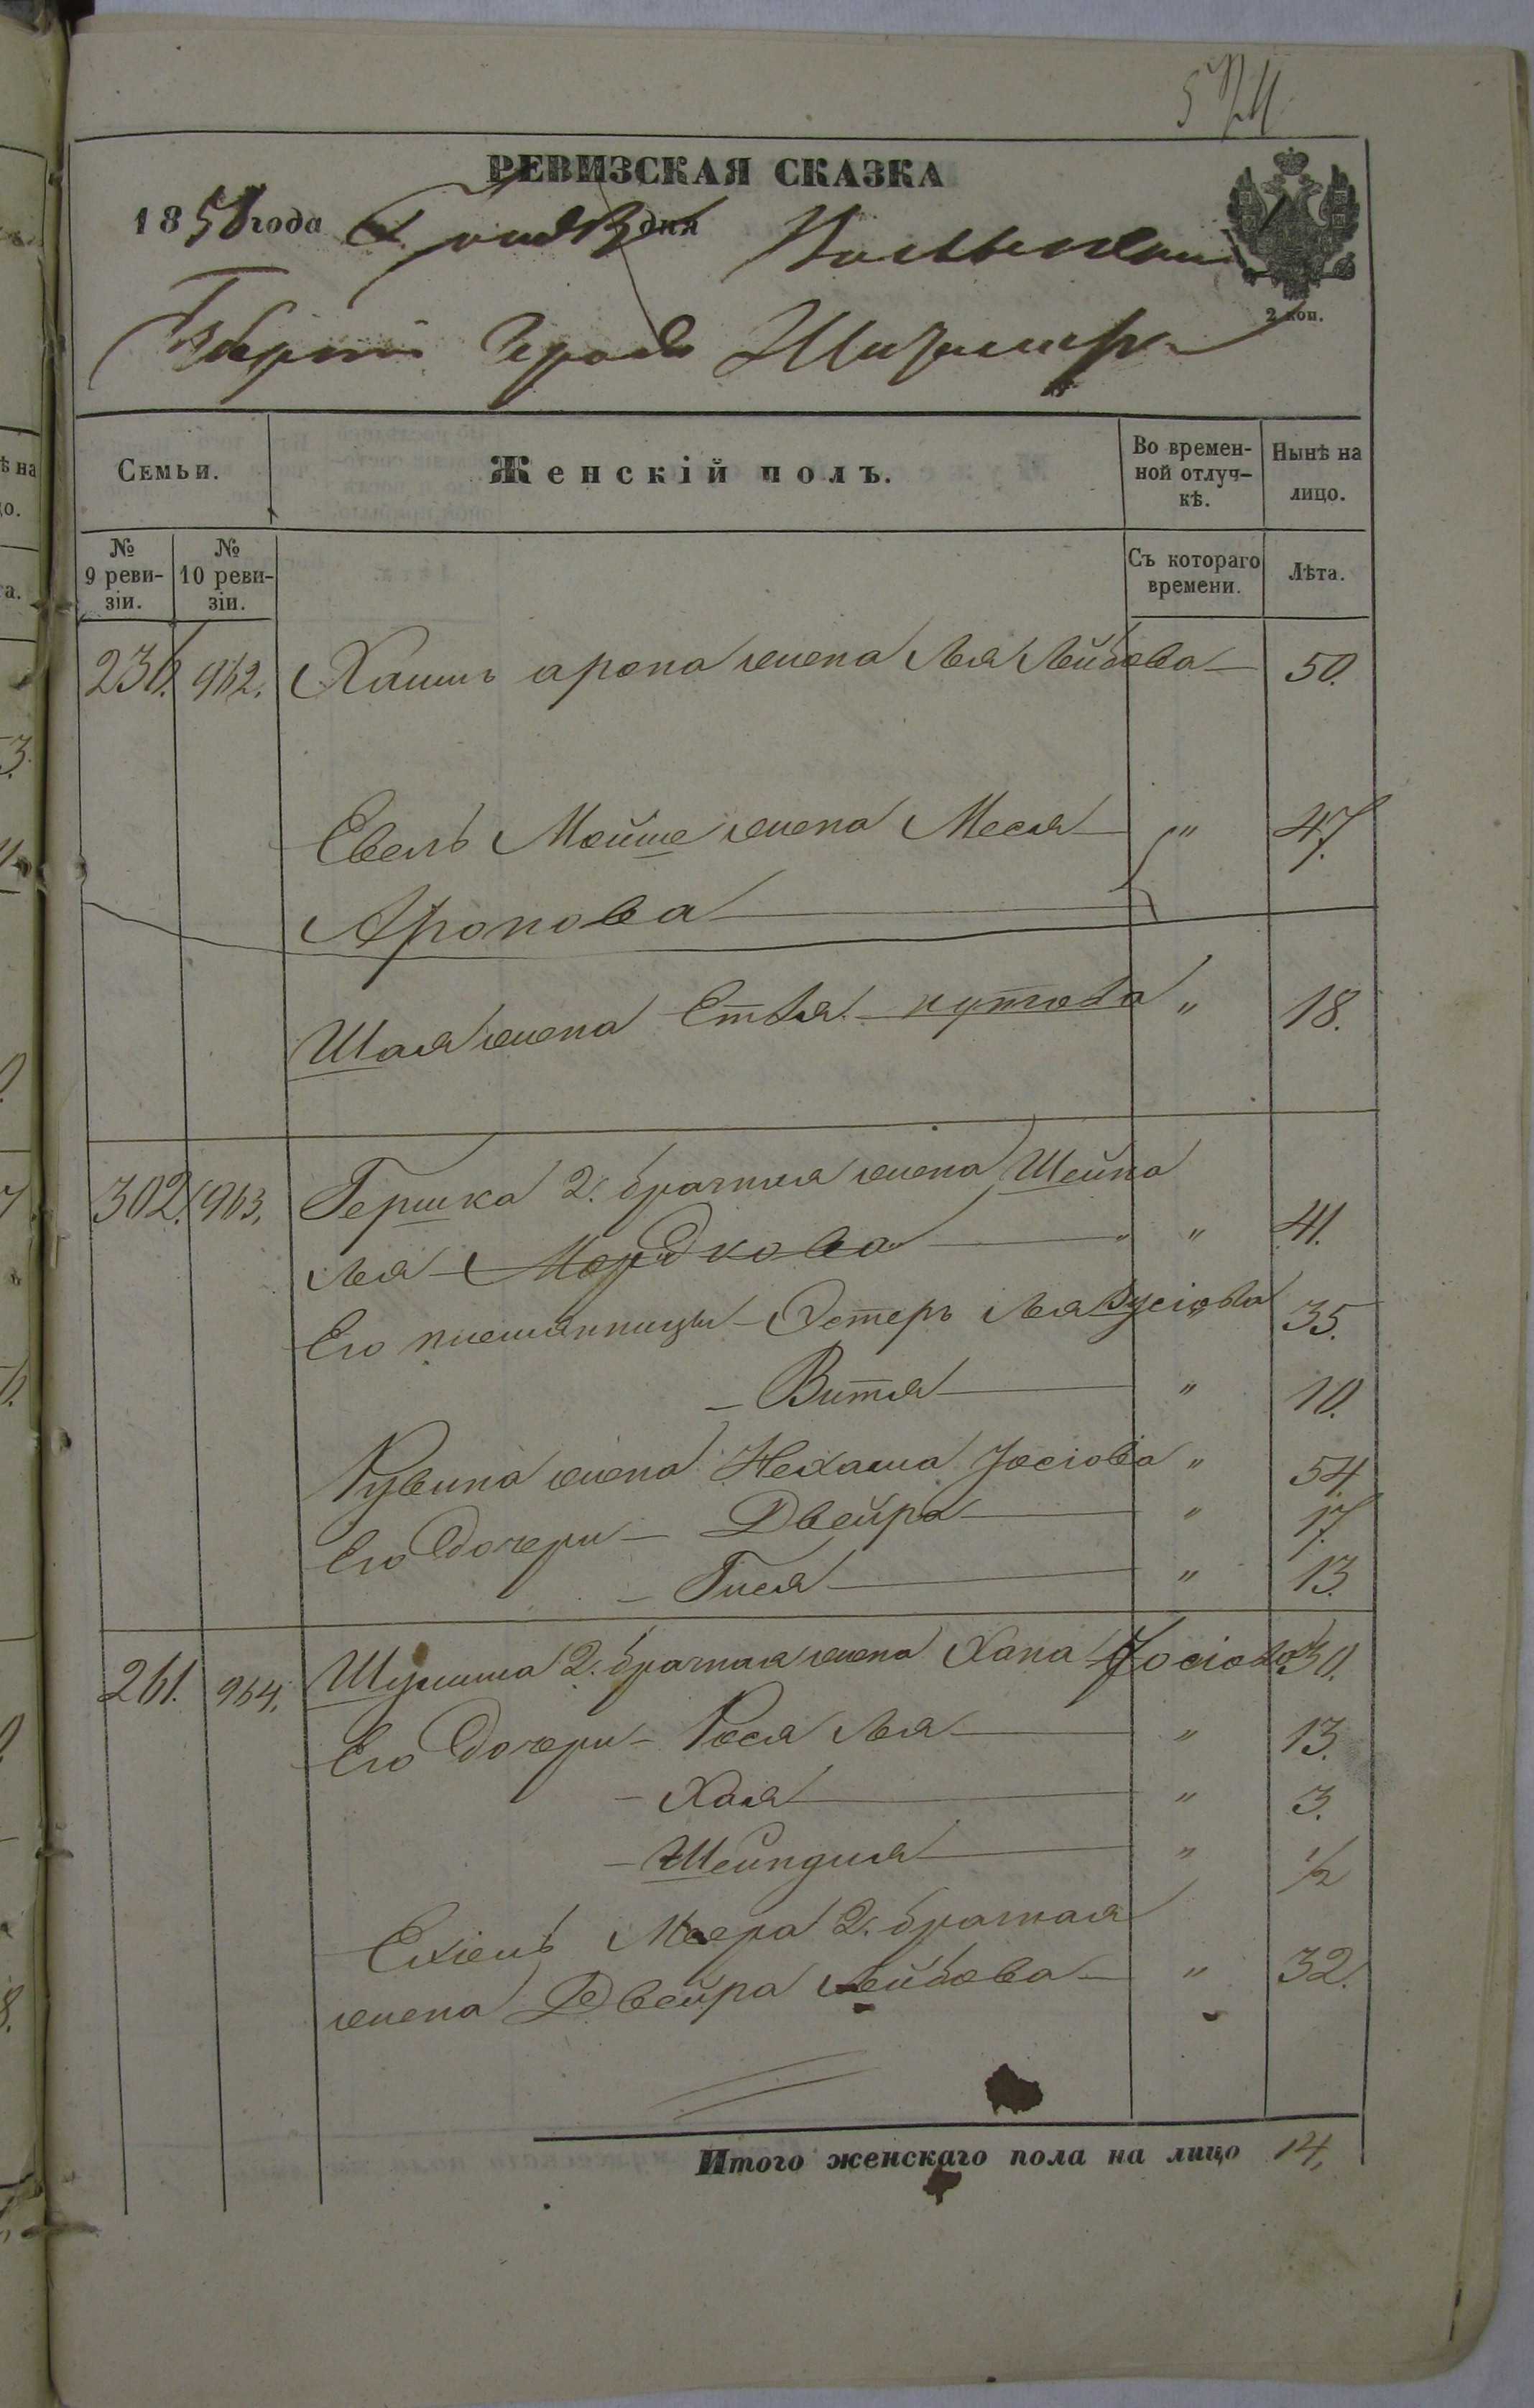 РЕВИЗСКАЯ СКАЗКА
1858 года дня Волынской
2 коп.
Губернии Города Житомира
Семьи.
Женскій полъ.
Во времен-
ной отлуч-
кѣ.
Нынѣ на
лицо.
№
9 реви-
зіи.
№
10 реви-
зіи.
Съ котораго
времени.
Лѣта.
236. 962. Хаимъ арона жена Лея Лейбова 50.
Евель Мойше жена Меся " 47.
Аронова
Шая жена Етля " 18.
302. 963. Гершка 2. брачная жена Шейна
Лея Мордкова " 41.
Его племянницы Эстеръ Лея 35.
Витля " 10.
Рувина жена Нехама Іосіова " 54.
Его дочери Двейра " 17.
Гися " 13.
261. 964. Шулима 2. брачная жена Хана Іосіова 30.
Его дочери Рося Лея " 13.
Хая " 3.
Шейндля " 1/2
Ехіель Меера 2. брачная
жена Двейра Лейбова " 32.
Итого женскаго пола на лицо 14.